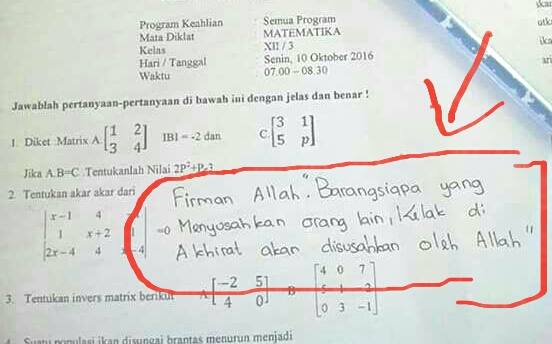 Program Keahlian : Semua Program
Mata Diklat : MATEMATIKA
Kelas : XII / 3
Hari / Tanggal : Senin, 10 Oktober 2016
Waktu : 07.00 – 08.30
Jawablah pertanyaan-pertanyaan di bawah ini dengan jelas dan benar !
1. Diket .Matrix A. [1 2
3 4] IBI = -2 dan C. [3 1
5 p]
Jika A.B=C .Tentukanlah Nilai 2P²+P-3
2. Tentukan akar akar dari
x – 1 4
1 x + 2
2x – 4 4 – 4
=0
Firman Allah : "Barangsiapa yang
Menyusahkan orang lain, Kelak di
Akhirat akan disusahkan oleh Allah"
3. Tentukan invers matrix berikut A. [–2 5
4 0] B [4 0 7
5 1 –2
0 3 –1]
4. Suatu populasi ikan disungai brantas menurun menjadi